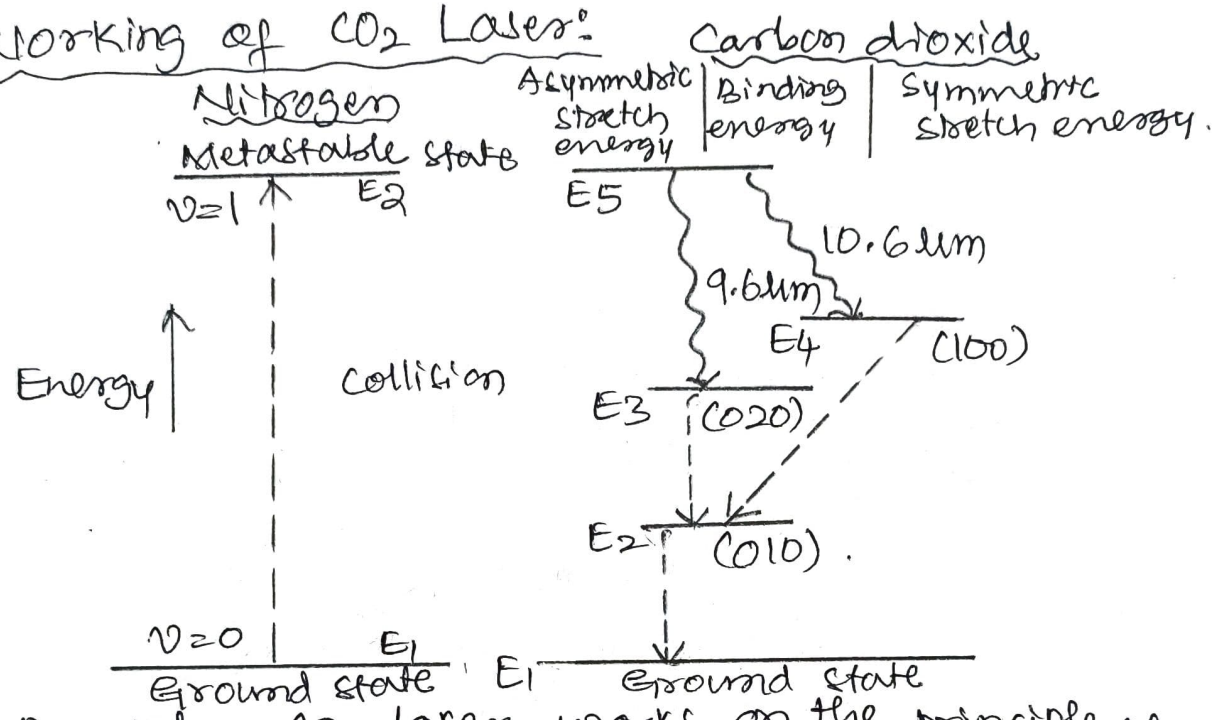 Working of CO2 Laser:
Carbon dioxide
Nitrogen
Asymmetric stretch energy
Binding energy
Symmetric stretch energy.
Metastable state
ν=1
E2
E5
10.6 μm
9.6μm
E4
(100)
Energy
Collision
E3
(020)
E2
(010).
ν=0
E1
Ground state
E1
Ground state
laser works on the principle